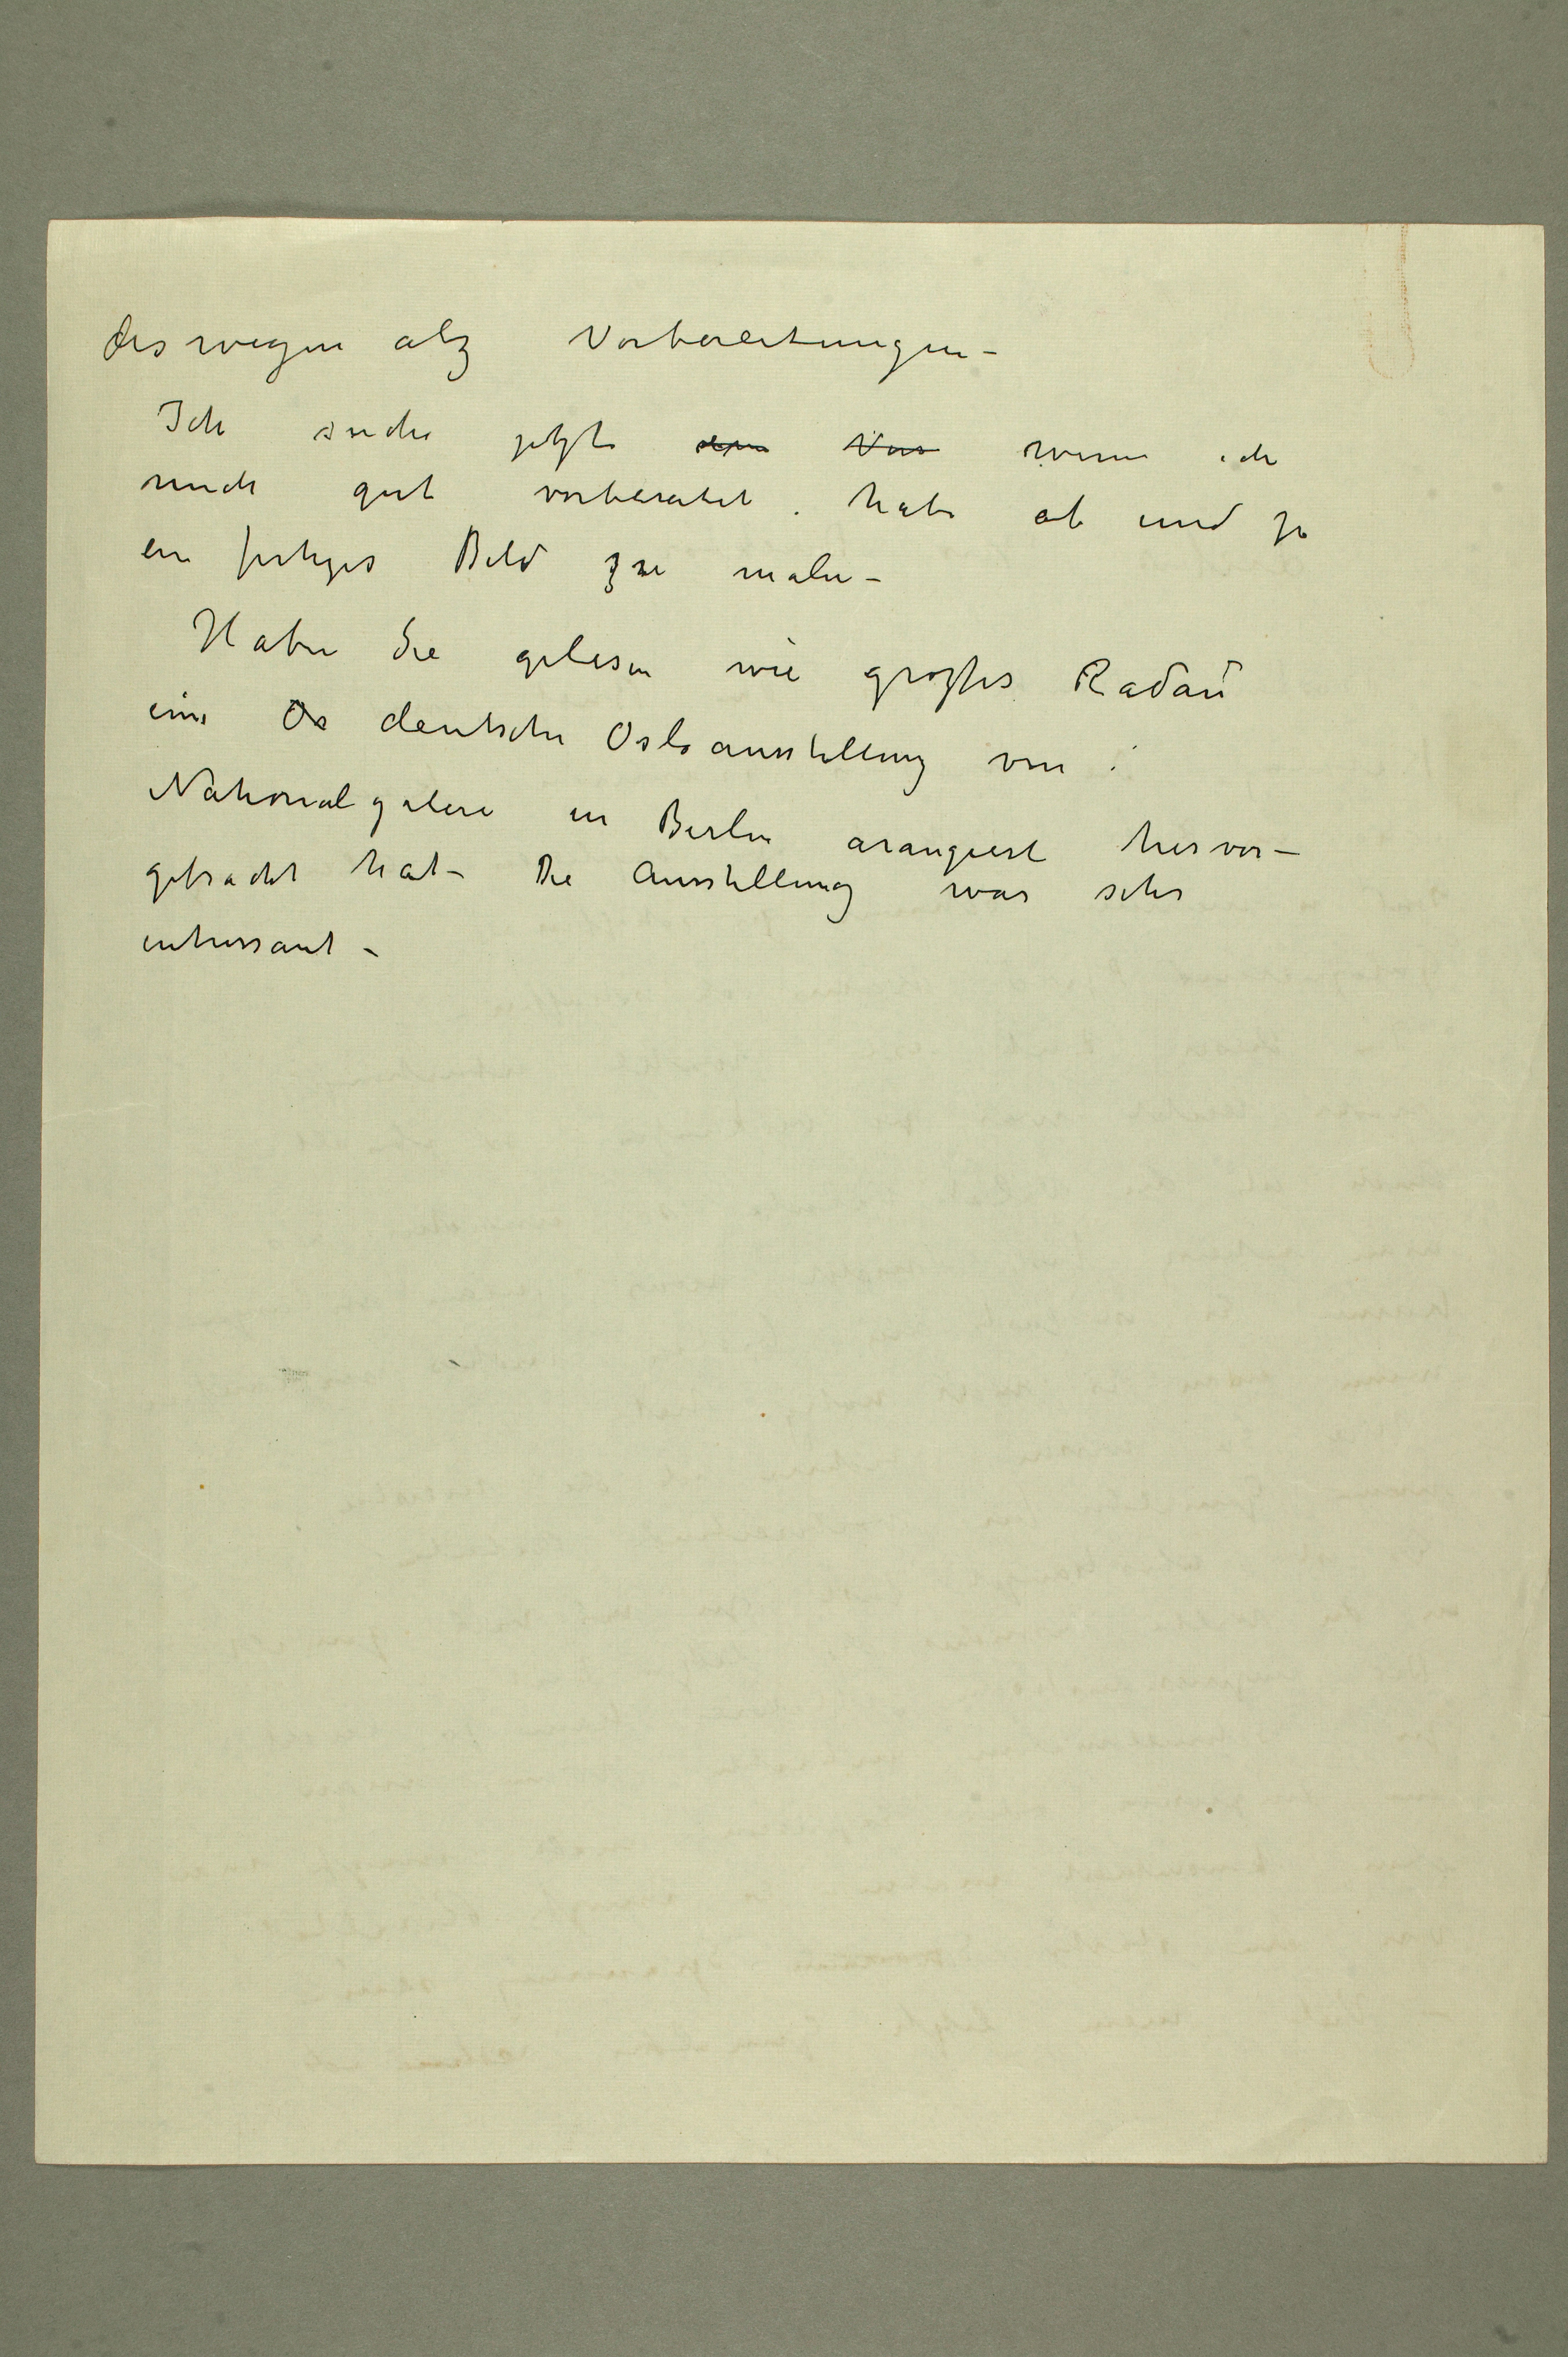 deswegen alz Vorbereitungen –
Ich suche jetzt wenn ich
mich gut vorbereitet habe ab und zu
ein fertiges Bild zu malen –
Haben Sie gelesen wie großes Radaŭ
eine Os deutsche Osloausstellung von
Nationalgalerie in Berlin arangiert hervor–
gebracht hat – Die Ausstellung war sehr
interessant –